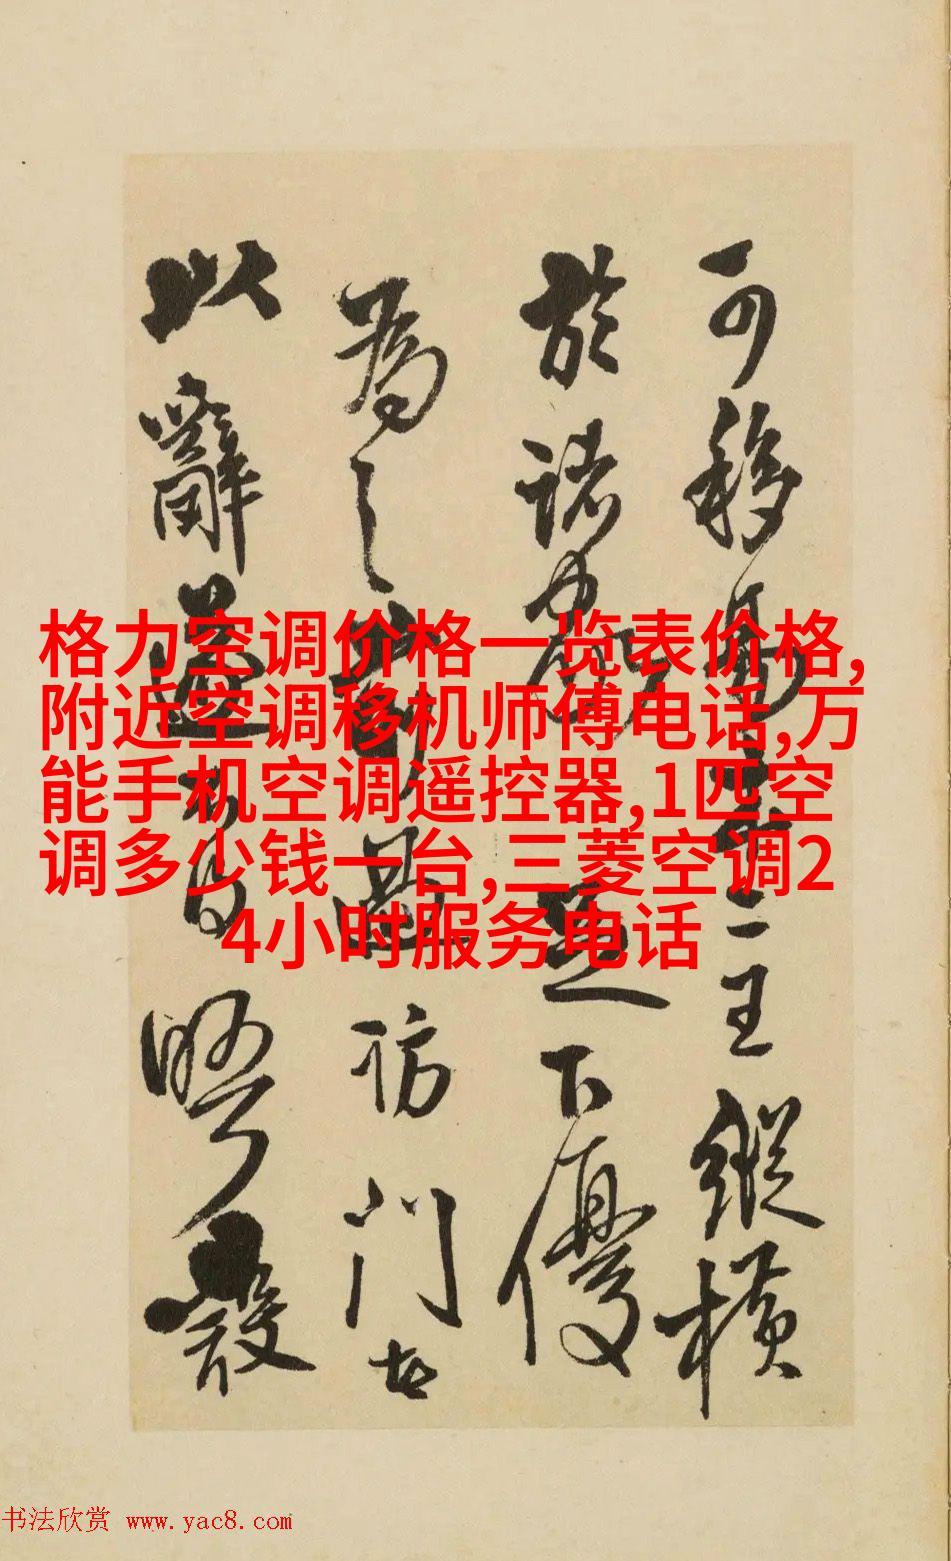 格力空调价格一览表价格,
附近空调移机师傅电话,万
能手机空调遥控器,1匹空
调多少钱一台,三菱空调2
4小时服务电话
可移易二王縱橫
於諸家下優
為之訪門
以辭
书法欣赏 www.yac8.com